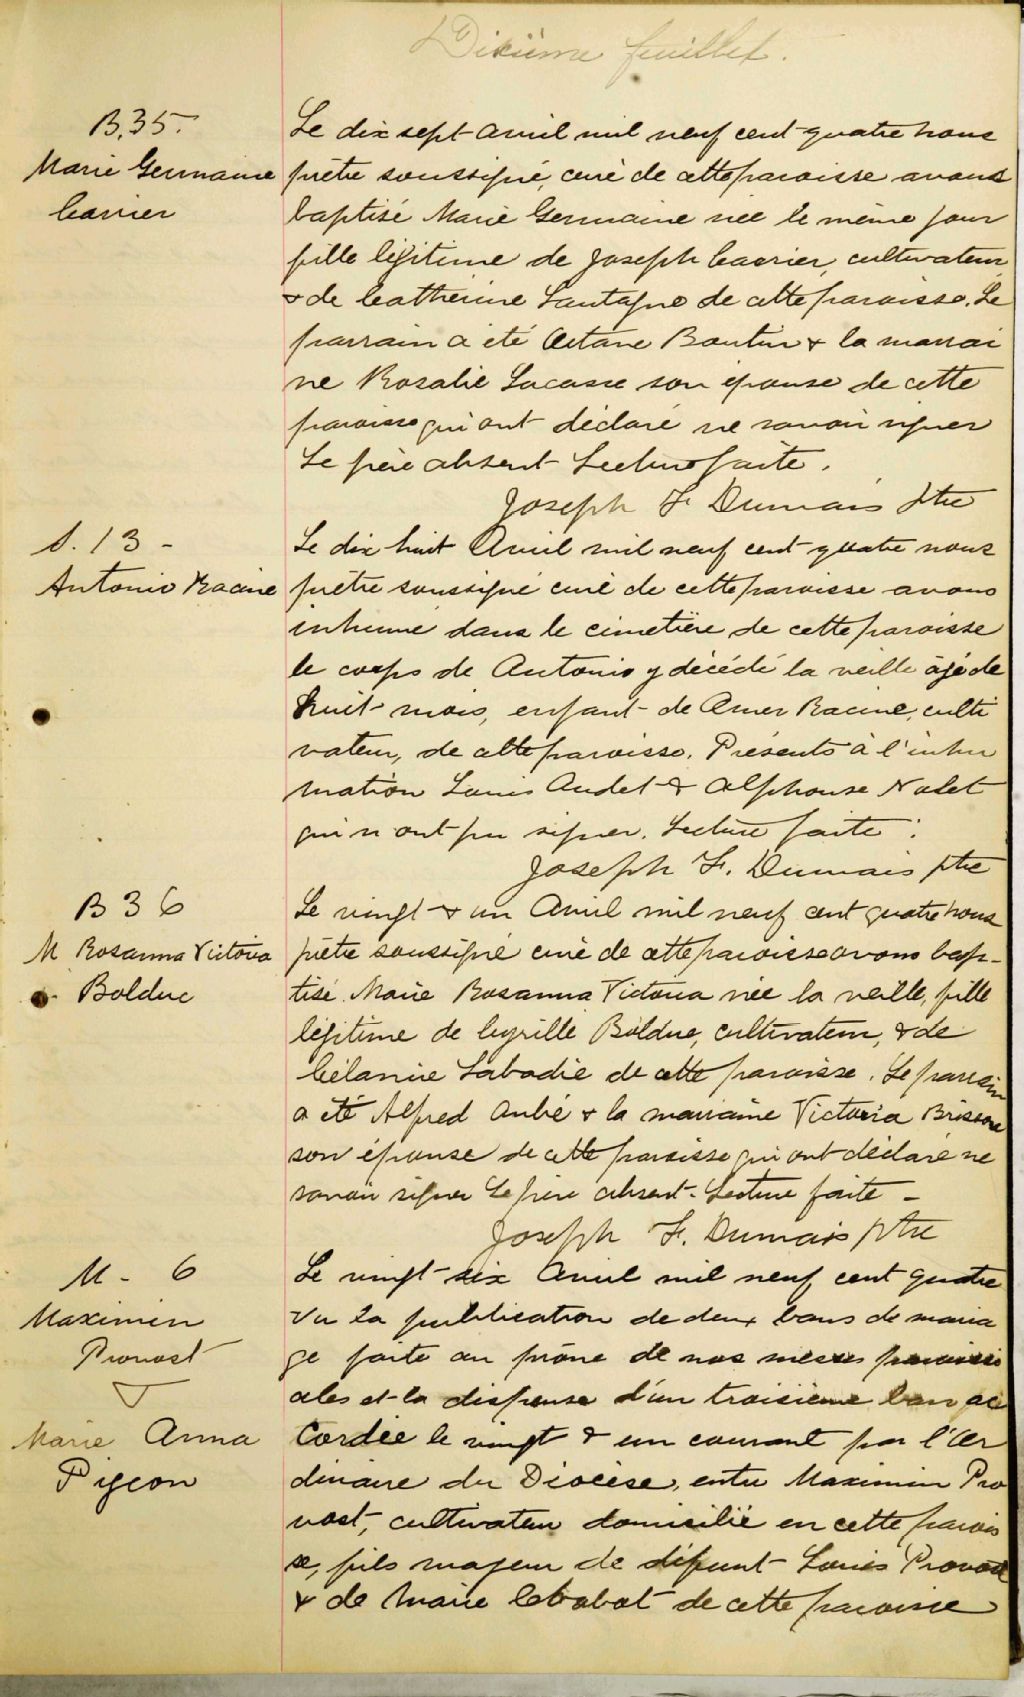 Dixième feuillet.
B.35.
Marie Germaine
Carrier
Le dix sept Avril mil neuf cent quatre nous
prêtre soussigné, curé de cette paroisse avons
baptisé Marie Germaine née le même jour
fille légitime de Joseph Carrier, cultivateur
& de Catherine Lantagne de cette paroisse. Le
parrain a été Octave Boutin & la marrai
ne Rosalie Lacasse son épouse de cette
paroisse qui ont déclaré ne savoir signer
Le père absent Lecture faite.
Joseph F Dumais ptre
S. 13 -
Antonio Racine
Le dix huit Avril mil neuf cent quatre nous
prêtre soussigné curé de cette paroisse avons
inhumé dans le cimetière de cette paroisse
le corps de Antonio y décédé la veille âgé de
huit mois, enfant de Omer Racine, culti
vateur, de cette paroisse. Présents à l'inhu
mation Louis Audet & Alphonse Nolet
qui n'ont pu signer. Lecture faite.
Joseph F. Dumais ptre
B 36
M Rosanna Victoria
Bolduc
Le vingt & un Avril mil neuf cent quatre nous
prêtre soussigné curé de cette paroisse avons bap-
tisé Marie Rosanna Victoria née la veille, fille
légitime de Cyrille Bolduc, cultivateur, & de
Célanire Labadie de cette paroisse. Le parrain
a été Alfred Aubé & la marraine Victoria Brisson
son épouse de cette paroisse qui ont déclaré ne
savoir signer Le père absent. Lecture faite -
Joseph F. Dumais ptre
M - 6
Maximin
Provost
Marie Anna
Pigeon
Le vingt-six Avril mil neuf cent quatre
Vu la publication de deux bans de maria
ge faite au prône de nos messes paroissi
ales et la dispense d'un troisième ban ac
cordée le vingt & un courant par l'Or
dinaire du Diocèse, entre Maximin Pro
vost, cultivateur domicilié en cette parois
se, fils majeur de défunt Louis Provost
& de Marie Chabot de cette paroisse